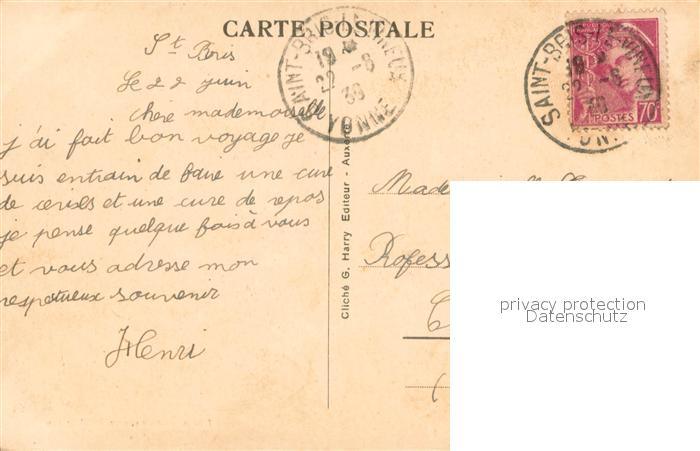 CARTE POSTALE
St Bris
Le 22 juin
chère mademoiselle
j'ai fait bon voyage je
suis entrain de faire une cure
de cerises et une cure de repos
je pense quelque fois à vous
et vous adresse mon
respetueux souvenir
Henri
Cliché G. Harry Editeur - Auxerre
SAINT-BRIS-LE-VINEUX
YONNE
18
22 -6
39
SAINT-BRIS-LE-VINEUX
18
22
POSTES
70
Profess
privacy protection
Datenschutz